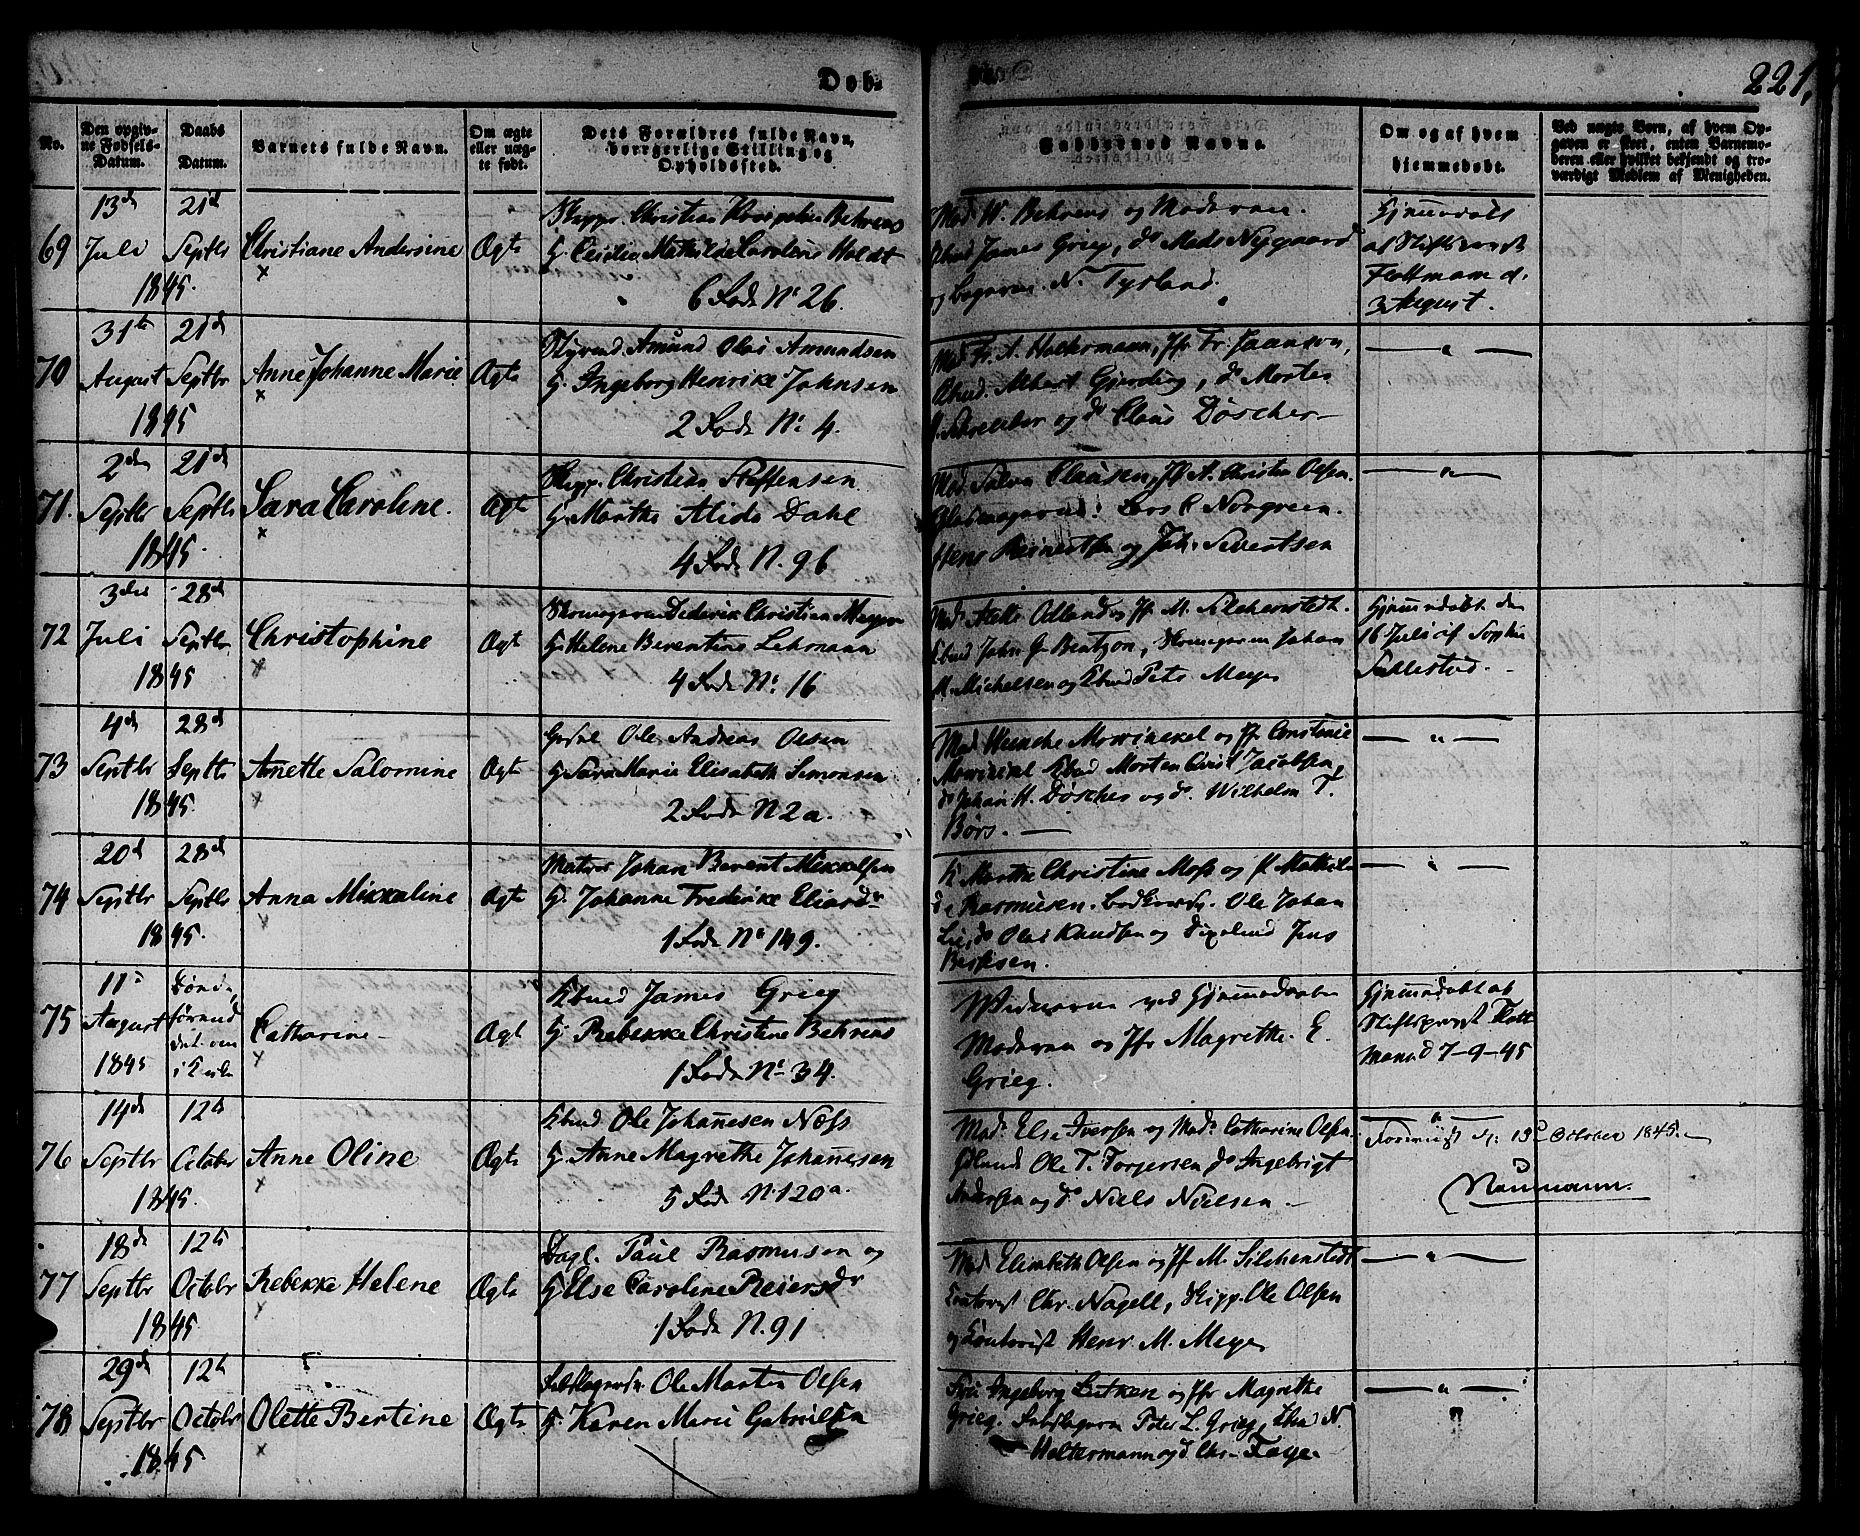 Døb-
221.
No.
Den opgiv-
ne Fødsels-
Datum.
Daabs
Datum.
Barnets fulde Navn.
Om ægte
eller uæg-
te født.
Dets Forældres fulde Navn,
borgerlige Stilling og
Opholdssted.
Faddernes Navne.
Om og af hvem
hjemmedøbt.
Ved uægte Børn, af hvem Op-
gaven er skeet, enten Barnemo-
deren eller hvilket bekjendt og tro-
værdigt Medlem af Menigheden.
13de
21de
69 Juli Septbr Christiane Andersine Ægte
1845.
Skippr. Christian Behrens
G. Cecilia Mathilde Caroline Holdt
6 Rode No 26.
Mad. W. Behrens og Moderen.
James Grieg, do Mads Nygaard
og N. Tysland.
Hjemmedøbt
af Stiftsprovst
Flottmann d.
3 August.
31te
21de
70 August Septbr Anne Johanne Marie Ægte
1845
Styrmd Amund Olai Amundsen
G. Ingeborg Henrike Johnsen
2 Rode No 4.
Mad Fr. A. Holtermann, Jfr Fr. Jaanson,
Albert Gjerding, do Morten
og do Claus Döscher
— " —
2den
21de
71. Septbr Septbr Sara Caroline. Ægte
1845.
Skipp. Christian Steffensen
G. Marthe Alida Dahl
4 Rode N. 96
Mad. Clausen, Jfr A. Christin Olsen.
Lars C Norgreen.
Hens og Joh. Sivertsen
— " —
3die
28de
72 Juli Septbr Christophine Ægte
1845
Skomagerm Diderik Christian Meyer
G Helene Berentine Lehmann
4 Rode No 16
Mad. Jfr M. Silchenstedt.
John G Bentzon, Skomagerm Johan
M. Michelsen og Peter Meyer
Hjemmedøbt den
16 Juli af Sophie
4de
28de
73 Septbr Septbr Anette Salomine Ægte
1845.
Ole Andreas Olsen
G Sara Marie Elisabeth Simonsen
2 Rode N 2a.
Mad Wenche Mowinckel og Jfr Constance
Mowinckel Morten Christ Jacobsen,
do Johan H. Döscher og do Wilhelm T.
Börs. —
— " —
20de
28de
74 Septbr Septbr Anna Mikkaline Ægte
1845.
Matros Johan Berent Mikkelsen
G. Johanne Fredrikke Eliasdr
1 Rode No 149.
K Marthe Christine Moss og P Mathil-
de Rasmusen. Ole Johan
do Olai Knudsen og Jens
— " —
11te
75 August Catharine Ægt
1845
James Grieg
G. Rebekke Christine Behrens
1 Rode No 34.
Vidnerne ved Hjemmedaaben
Moderen og Jfr Magrethe E.
Grieg.
Hjemmedøbt af
Stiftsprovst Flott
mann d 7-9-45
14de
12te
76 Septbr October Anne Oline Ægte
1845.
Ole Johannesen Næss
G. Anne Magrethe Johannesen
5 Rode No 120a.
Mad. Else Iversen og Mad. Catharine Olsen.
Ole T. Torjersen do Ingebrigt
Andersen og do Niels Nielsen —
— " —
Foreviist d. 13d October 1845.
Neumann.
18de
12te
77 Septbr Octobr Rebekke Helene Ægte
1845
Dagl. Paul Rasmusen og
G Else Caroline Reiersdr
1 Rode N. 91
Mad Elisabeth Olsen og Jfr M. Silchenstedt
Kontorist Chr. Nagell, Skipp. Ole Olsen
og Kontorist Henr M. Meyer
— " —
29de
12te
78 Septbr Octobr Olette Bertine Ægte
1845
Ole Martin Olsen
G. Karen Marie Gabrielsen
Fru Ingeborg Lütken og Jfr Magrethe
Grieg. Peter L. Grieg, N.
Holtermann og do Chr. Faye
— " —